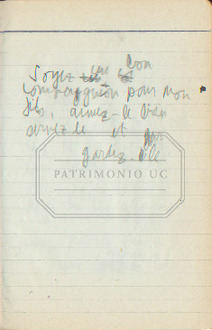 Soyez un bon
compagnon pour mon
fils, aimez-le bien
aimez le et
gardez-le
PATRIMONIO UC